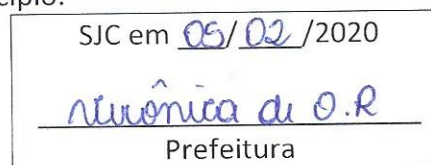 cípio.
SJC em 05/02/2020
Verônica de O.R
Prefeitura